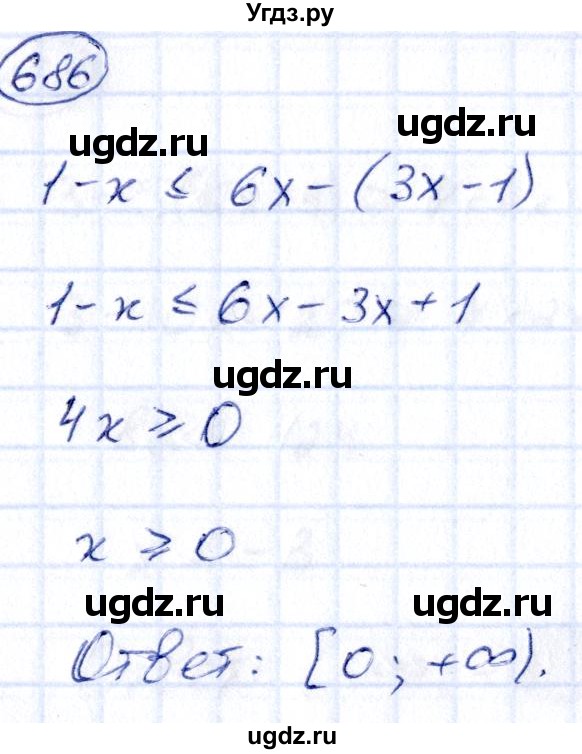 Угдз.ру
686
ugdz.ru
ugdz.ru
1-x ≤ 6x-(3x-1)
1-x ≤ 6x-3x+1
ugdz.ru
4x ≥ 0
x ≥ 0
ugdz.ru
ugdz.ru
Ответ: [0; +∞).
Угдз.ру